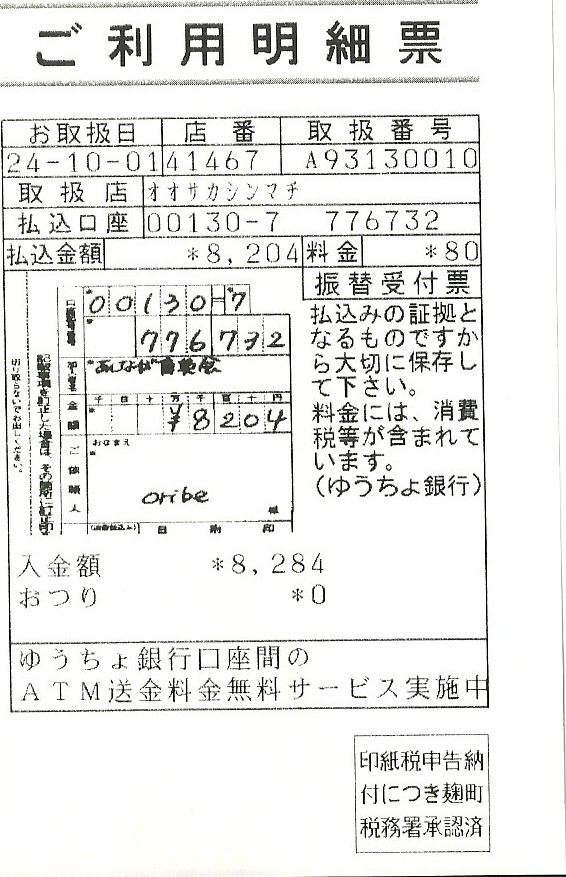 ご利用明細票
お取扱日 店番 取扱番号
24-10-01 41467 A93130010
取扱店 オオサカシンマチ
払込口座 00130-7 776732
払込金額 *8,204 料金 *80
振替受付票
払込みの証拠と
なるものですか
ら大切に保存し
て下さい。
料金には、消費
税等が含まれて
います。
(ゆうちょ銀行)
00130-7
776732
金額 千百十万千百十円
¥8204
おなまえ
ご依頼人
oribe
様
切り取らないでお出しください。
入金額 *8,284
おつり *0
ゆうちょ銀行口座間の
ATM送金料金無料サービス実施中
印紙税申告納
付につき麹町
税務署承認済